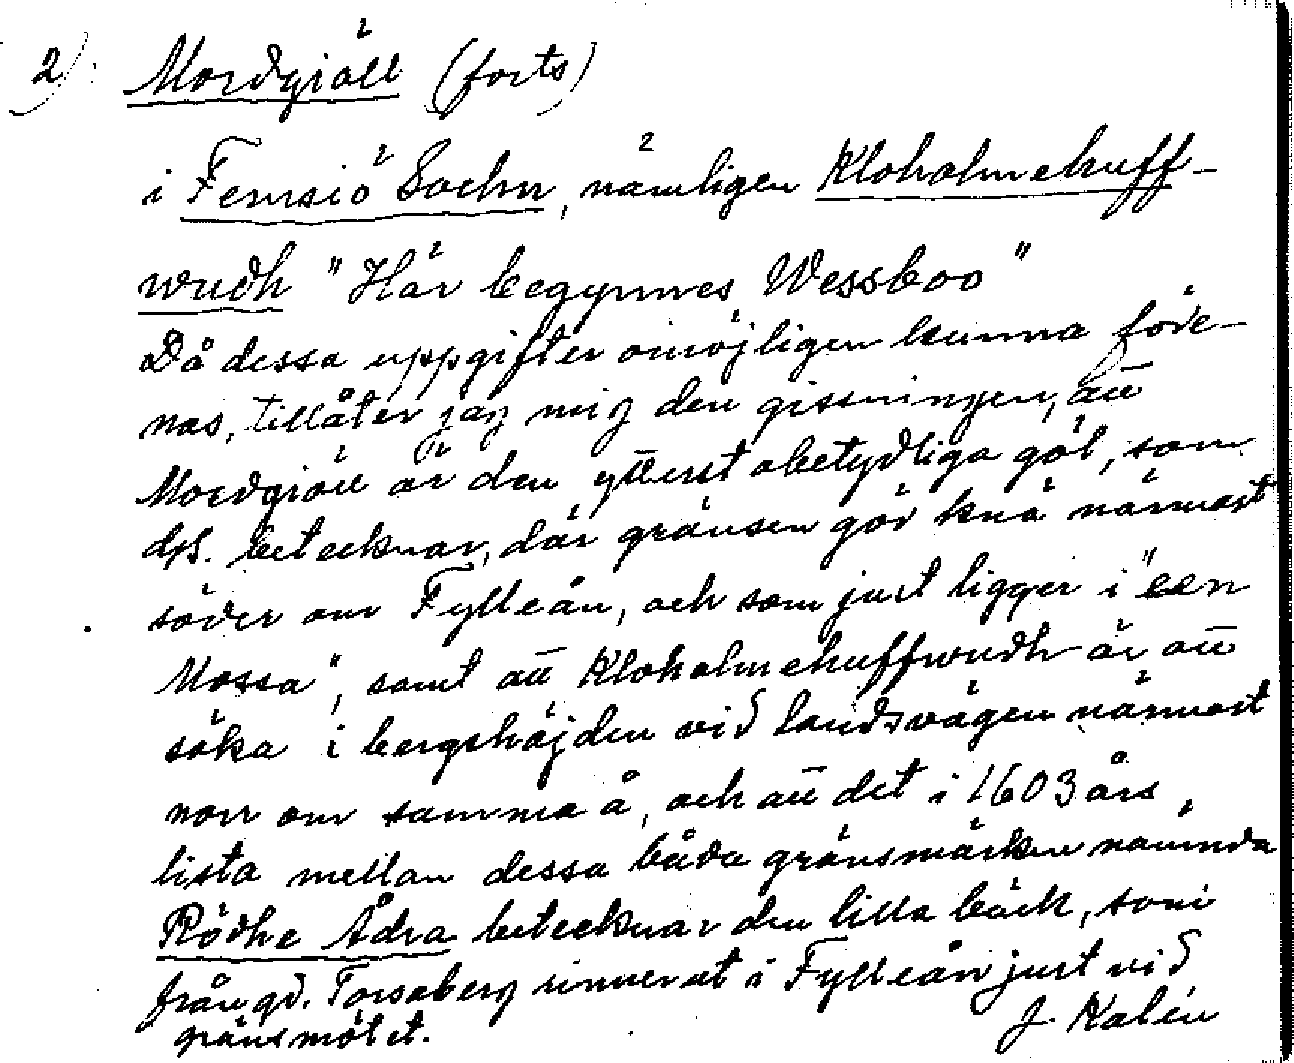 2) Mordgiöll (forts)
i Femsiö Sochn, nämligen Kloholmehuff-
wudh "Här begynnes Wessboo"
Då dessa uppgifter omöjligen kunna före-
nas, tillåter jag mig den gissningen, att
Mordgiöll är den ytterst obetydliga göl, som
betecknar, där gränsen gör knä närmast
söder om Fylleån, och som just ligger i "een
Mossa", samt att Kloholmehuffwudh är att
söka i bergshöjden vid landsvägen närmast
norr om samma å, och att det i 1603 års
lista mellan dessa båda gränsmärken nämnda
Rödhe Ådra betecknar den lilla bäck, som
från gd. Torsaberg rinner ut i Fylleån just vid
gränsmötet.
J. Kalén